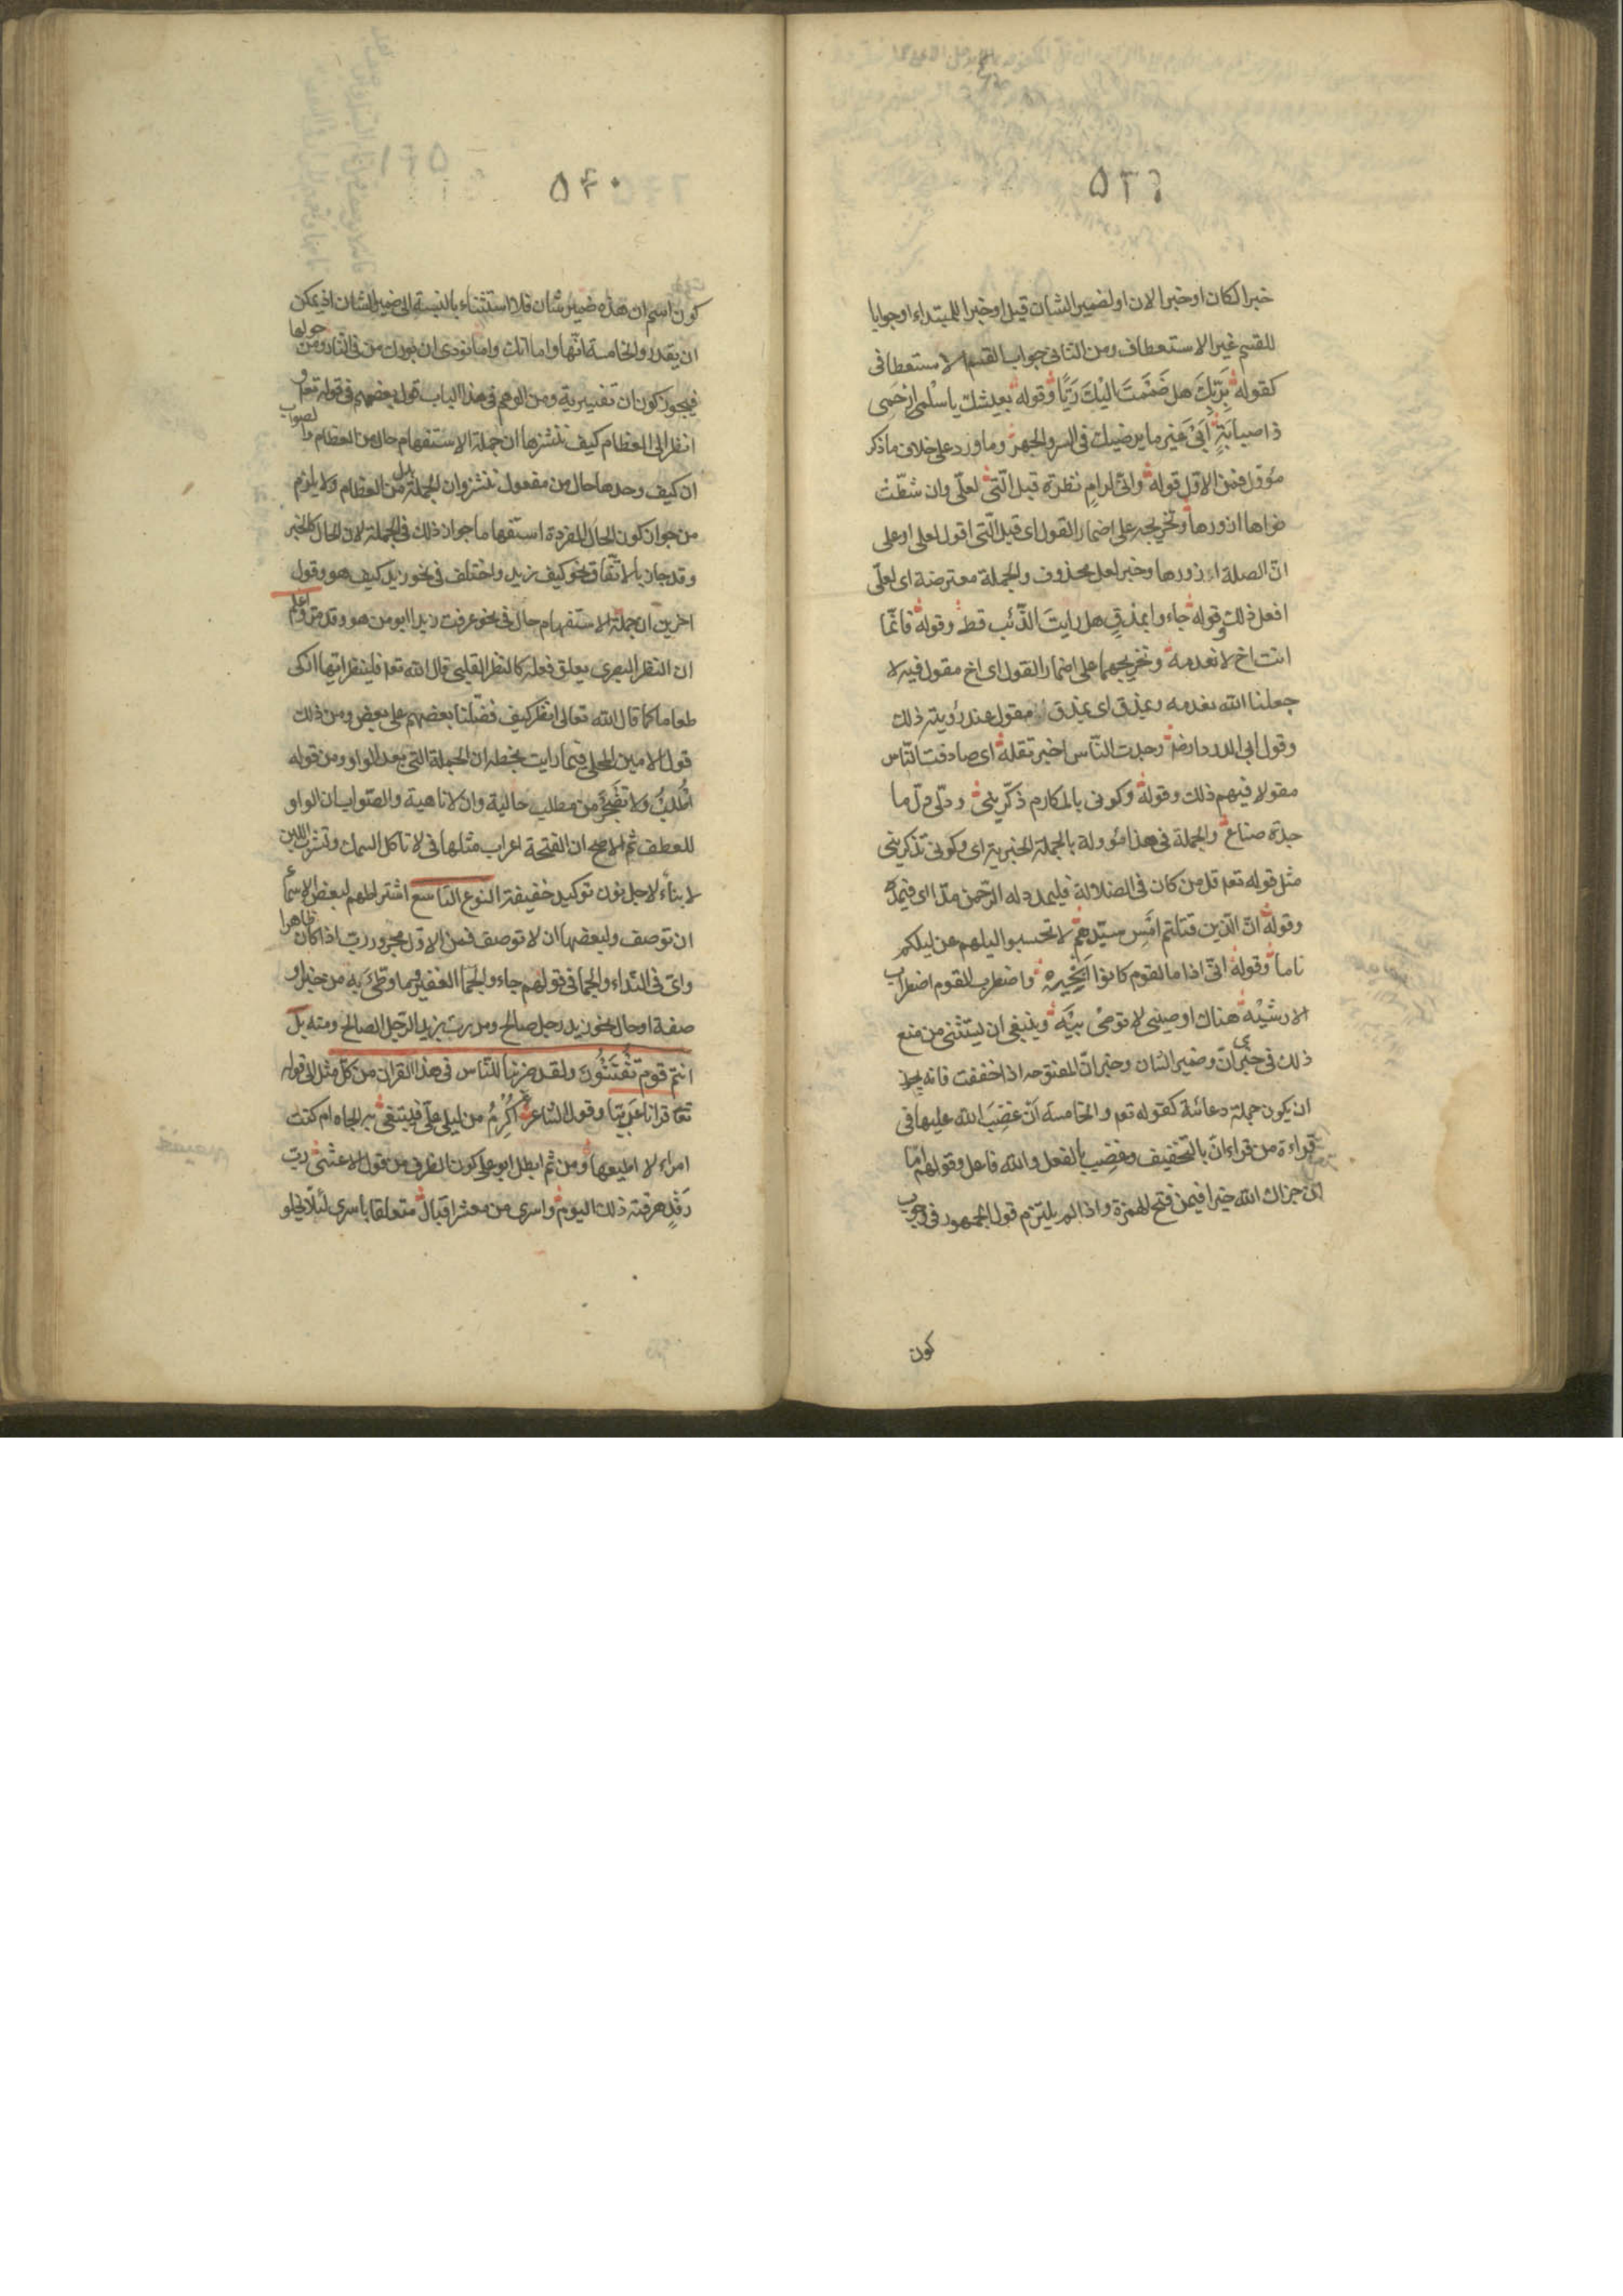 ٥٣٩
خبرا لكان او خبرا لان او لضمير الشان قيل او خبرا للمبتداء او جوابا
للقسم غير الاستعطاف ومن الثانى جواب القسم الاستعطافى
كقوله بربك هل ضممت اليك ريّا وقوله بعيشك يا سلمى ارحمى
ذا صبابة ابى غير ما يرضيك فى السر والجهر وما ورد على خلاف ما ذكر
مؤول فمن الاول قوله وانى لرام نظرة قبل التى لعلى وان شطت
نواها ازورها وتخريجه على اضمار القول اى قبل التى اقول لعلى او على
ان الصلة ازورها وخبر لعل محذوف والجملة معترضة اى لعلى
افعل ذلك وقوله جاءوا بمذق هل رايت الذئب قط وقوله فانما
انت اخ لا نعدمه وتخريجهما على اضمار القول اى اخ مقول فيه لا
جعلنا الله نعدمه وبمذق اى بمذق مقول عند رؤيته ذلك
وقول ابى الدرداء رضه وجدت الناس اخبر تقله اى صادفت الناس
مقولا فيهم ذلك وقوله وكونى بالمكارم ذكرينى ودلى دل ما
جدة صناع والجملة فى هذا مؤولة بالجملة الخبرية اى وكونى تذكرينى
مثل قوله تعم قل من كان فى الضلالة فليمدد له الرحمن مدا اى فيمد
وقوله ان الذين قتلتم امس سيدهم لا تحسبوا ليلهم عن ليلكم
ناما وقوله انى اذا ما القوم كانوا انجيه واضطرب القوم اضطراب
الارشية هناك اوصينى لا توصى بيه وينبغى ان يستثنى من منع
ذلك فى خبرى ان وضمير الشان وخبر ان المفتوحه اذا خففت فانه يجوز
ان يكون جملة دعائية كقوله تعم والخامسة ان غضب الله عليها فى
قراءة من قراء ان بالتخفيف وغضب بالفعل والله فاعل وقولهم اما
ان جزاك الله خيرا فيمن فتح الهمزة واذا لم يلتزم قول الجمهور فى وجوب
كون
٥٤٠
كون اسم ان هذه ضمير شان فلا استثناء بالنسبة الى ضمير الشان اذ يمكن
ان يقدر والخامسة انها واما انك واما نودى ان بورك من فى النار ومن حولها
فيجوز كون ان تفسيرية ومن الوهم فى هذا الباب قول بعضهم فى قوله تعم و
انظر الى العظام كيف ننشزها ان جملة الاستفهام حال من العظام والصواب
ان كيف وحدها حال من مفعول ننشز وان الجملة بدل من العظام ولا يلزم
من جواز كون الحال المفردة استفهاما جواز ذلك فى الجملة لان الحال كالخبر
وقد جاز بالاتفاق نحو كيف زيد واختلف فى نحو زيد كيف هو وقول
اخرين ان جملة الاستفهام حال فى نحو عرفت زيدا ابو من هو وقد مر واعلم
ان النظر البصرى يعلق فعله كالنظر القلبى قال الله تعم فلينظر ايها ازكى
طعاما كما قال الله تعالى انظر كيف فضلنا بعضهم على بعض ومن ذلك
قول الامين المحلى فيما رايت بخطه ان الجملة التى بعد الواو ومن قوله
اطلب ولا تضجر من مطلب حالية وان لا ناهية والصواب ان الواو
للعطف ثم الاصح ان الفتحة اعراب مثلها فى لا تاكل السمك وتشرب اللبن
لا بناء لاجل نون توكيد خفيفة النوع التاسع اشتراطهم لبعض الاسماء
ان توصف ولبعضها ان لا توصف فمن الاول مجرور رب اذا كان ظاهرا
واى فى النداء والجما فى قولهم جاءوا الجما الغفير وما وطئ به من خبر او
صفة او حال نحو زيد رجل صالح ومررت بزيد الرجل الصالح ومنه بل
انتم قوم تفتنون ولقد ضربنا للناس فى هذا القران من كل مثل الى قوله
تعم قرانا عربيا وقول الشاعر ءاكرم من ليلى على فتبتغى به الجاه ام كنت
امراء لا اطيعها ومن ثم ابطل ابو على كون الظرف من قول الاعشى رب
رفد هرقته ذلك اليوم واسرى من معشر اقبال متعلقا باسرى لئلا يخلو